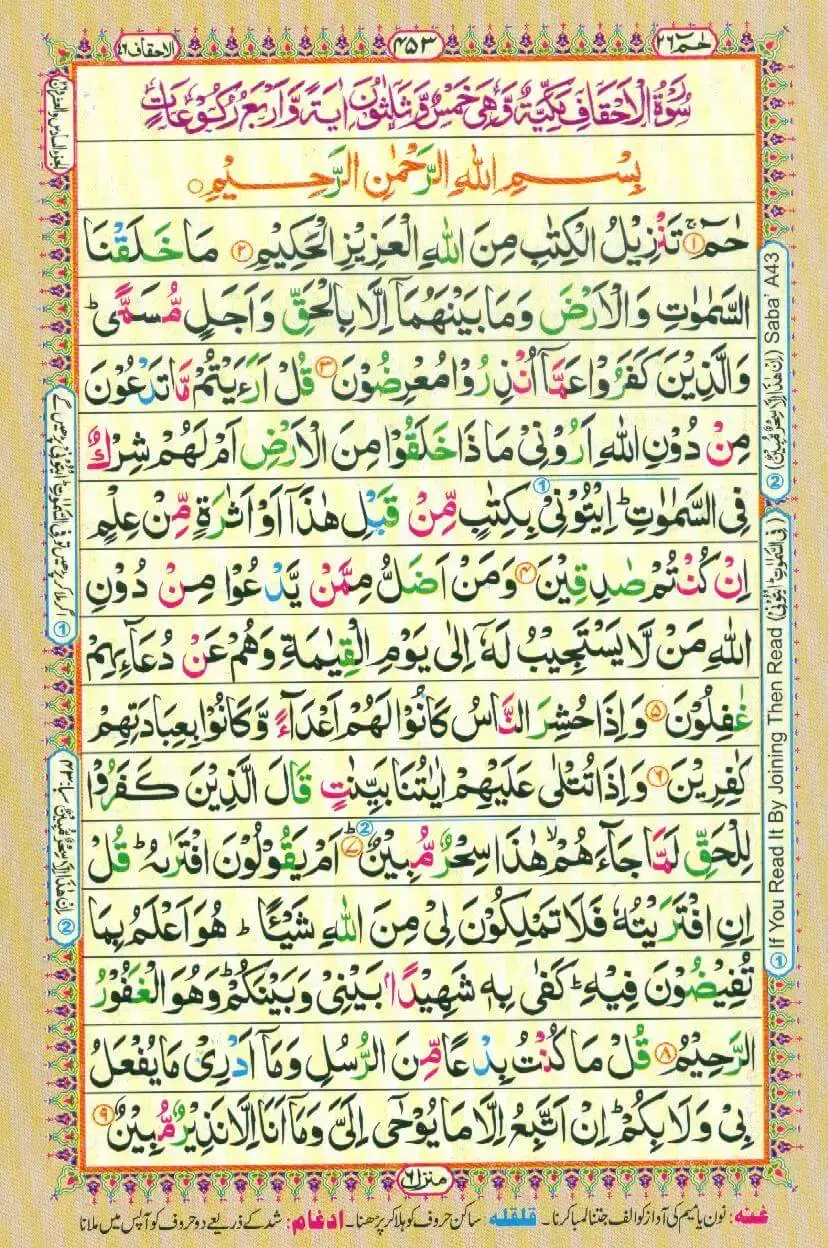 حٰمٓ ٢٦
٤٥٣
الاحقاف ٤٦
سُوْرَةُ الْاَحْقَافِ مَكِّيَّةٌ وَّهِيَ خَمْسٌ وَّثَلٰثُوْنَ اٰيَةً وَّاَرْبَعُ رُكُوْعَاتٍ
بِسْمِ اللّٰهِ الرَّحْمٰنِ الرَّحِيْمِ ○
حٰمٓ ۚ﴿١﴾ تَنْزِيْلُ الْكِتٰبِ مِنَ اللّٰهِ الْعَزِيْزِ الْحَكِيْمِ ﴿٢﴾ مَا خَلَقْنَا
السَّمٰوٰتِ وَالْاَرْضَ وَمَا بَيْنَهُمَآ اِلَّا بِالْحَقِّ وَاَجَلٍ مُّسَمًّى ؕ
وَالَّذِيْنَ كَفَرُوْا عَمَّآ اُنْذِرُوْا مُعْرِضُوْنَ ﴿٣﴾ قُلْ اَرَءَيْتُمْ مَّا تَدْعُوْنَ
مِنْ دُوْنِ اللّٰهِ اَرُوْنِيْ مَاذَا خَلَقُوْا مِنَ الْاَرْضِ اَمْ لَهُمْ شِرْكٌ
فِي السَّمٰوٰتِ ؕ اِيْتُوْنِيْ بِكِتٰبٍ مِّنْ قَبْلِ هٰذَآ اَوْ اَثٰرَةٍ مِّنْ عِلْمٍ
اِنْ كُنْتُمْ صٰدِقِيْنَ ﴿٤﴾ وَمَنْ اَضَلُّ مِمَّنْ يَّدْعُوْا مِنْ دُوْنِ
اللّٰهِ مَنْ لَّا يَسْتَجِيْبُ لَهٗٓ اِلٰى يَوْمِ الْقِيٰمَةِ وَهُمْ عَنْ دُعَآئِهِمْ
غٰفِلُوْنَ ﴿٥﴾ وَاِذَا حُشِرَ النَّاسُ كَانُوْا لَهُمْ اَعْدَآءً وَّكَانُوْا بِعِبَادَتِهِمْ
كٰفِرِيْنَ ﴿٦﴾ وَاِذَا تُتْلٰى عَلَيْهِمْ اٰيٰتُنَا بَيِّنٰتٍ قَالَ الَّذِيْنَ كَفَرُوْا
لِلْحَقِّ لَمَّا جَآءَهُمْ ۙ هٰذَا سِحْرٌ مُّبِيْنٌ ؕ﴿٧﴾ اَمْ يَقُوْلُوْنَ افْتَرٰىهُ ؕ قُلْ
اِنِ افْتَرَيْتُهٗ فَلَا تَمْلِكُوْنَ لِيْ مِنَ اللّٰهِ شَيْـًٔا ؕ هُوَ اَعْلَمُ بِمَا
تُفِيْضُوْنَ فِيْهِ ؕ كَفٰى بِهٖ شَهِيْدًۢا بَيْنِيْ وَبَيْنَكُمْ ؕ وَهُوَ الْغَفُوْرُ
الرَّحِيْمُ ﴿٨﴾ قُلْ مَا كُنْتُ بِدْعًا مِّنَ الرُّسُلِ وَمَآ اَدْرِيْ مَا يُفْعَلُ
بِيْ وَلَا بِكُمْ ؕ اِنْ اَتَّبِعُ اِلَّا مَا يُوْحٰٓى اِلَيَّ وَمَآ اَنَا اِلَّا نَذِيْرٌ مُّبِيْنٌ ﴿٩﴾
② (اِنْ هٰذَآ اِلَّا سِحْرٌ مُّبِيْنٌ) Saba' A43
① If You Read It By Joining Then Read (فِي السَّمٰوٰتِ ائْتُوْنِيْ)
② اِنْ هٰذَآ اِلَّا سِحْرٌ مُّبِيْنٌ سبا ٤٣
منزل ٦
غنہ: نون یا میم کی آواز کو الف جتنا لمبا کرنا۔ قلقلہ: ساکن حروف کو ہلا کر پڑھنا۔ ادغام: شد کے ذریعے دو حروف کو آپس میں ملانا